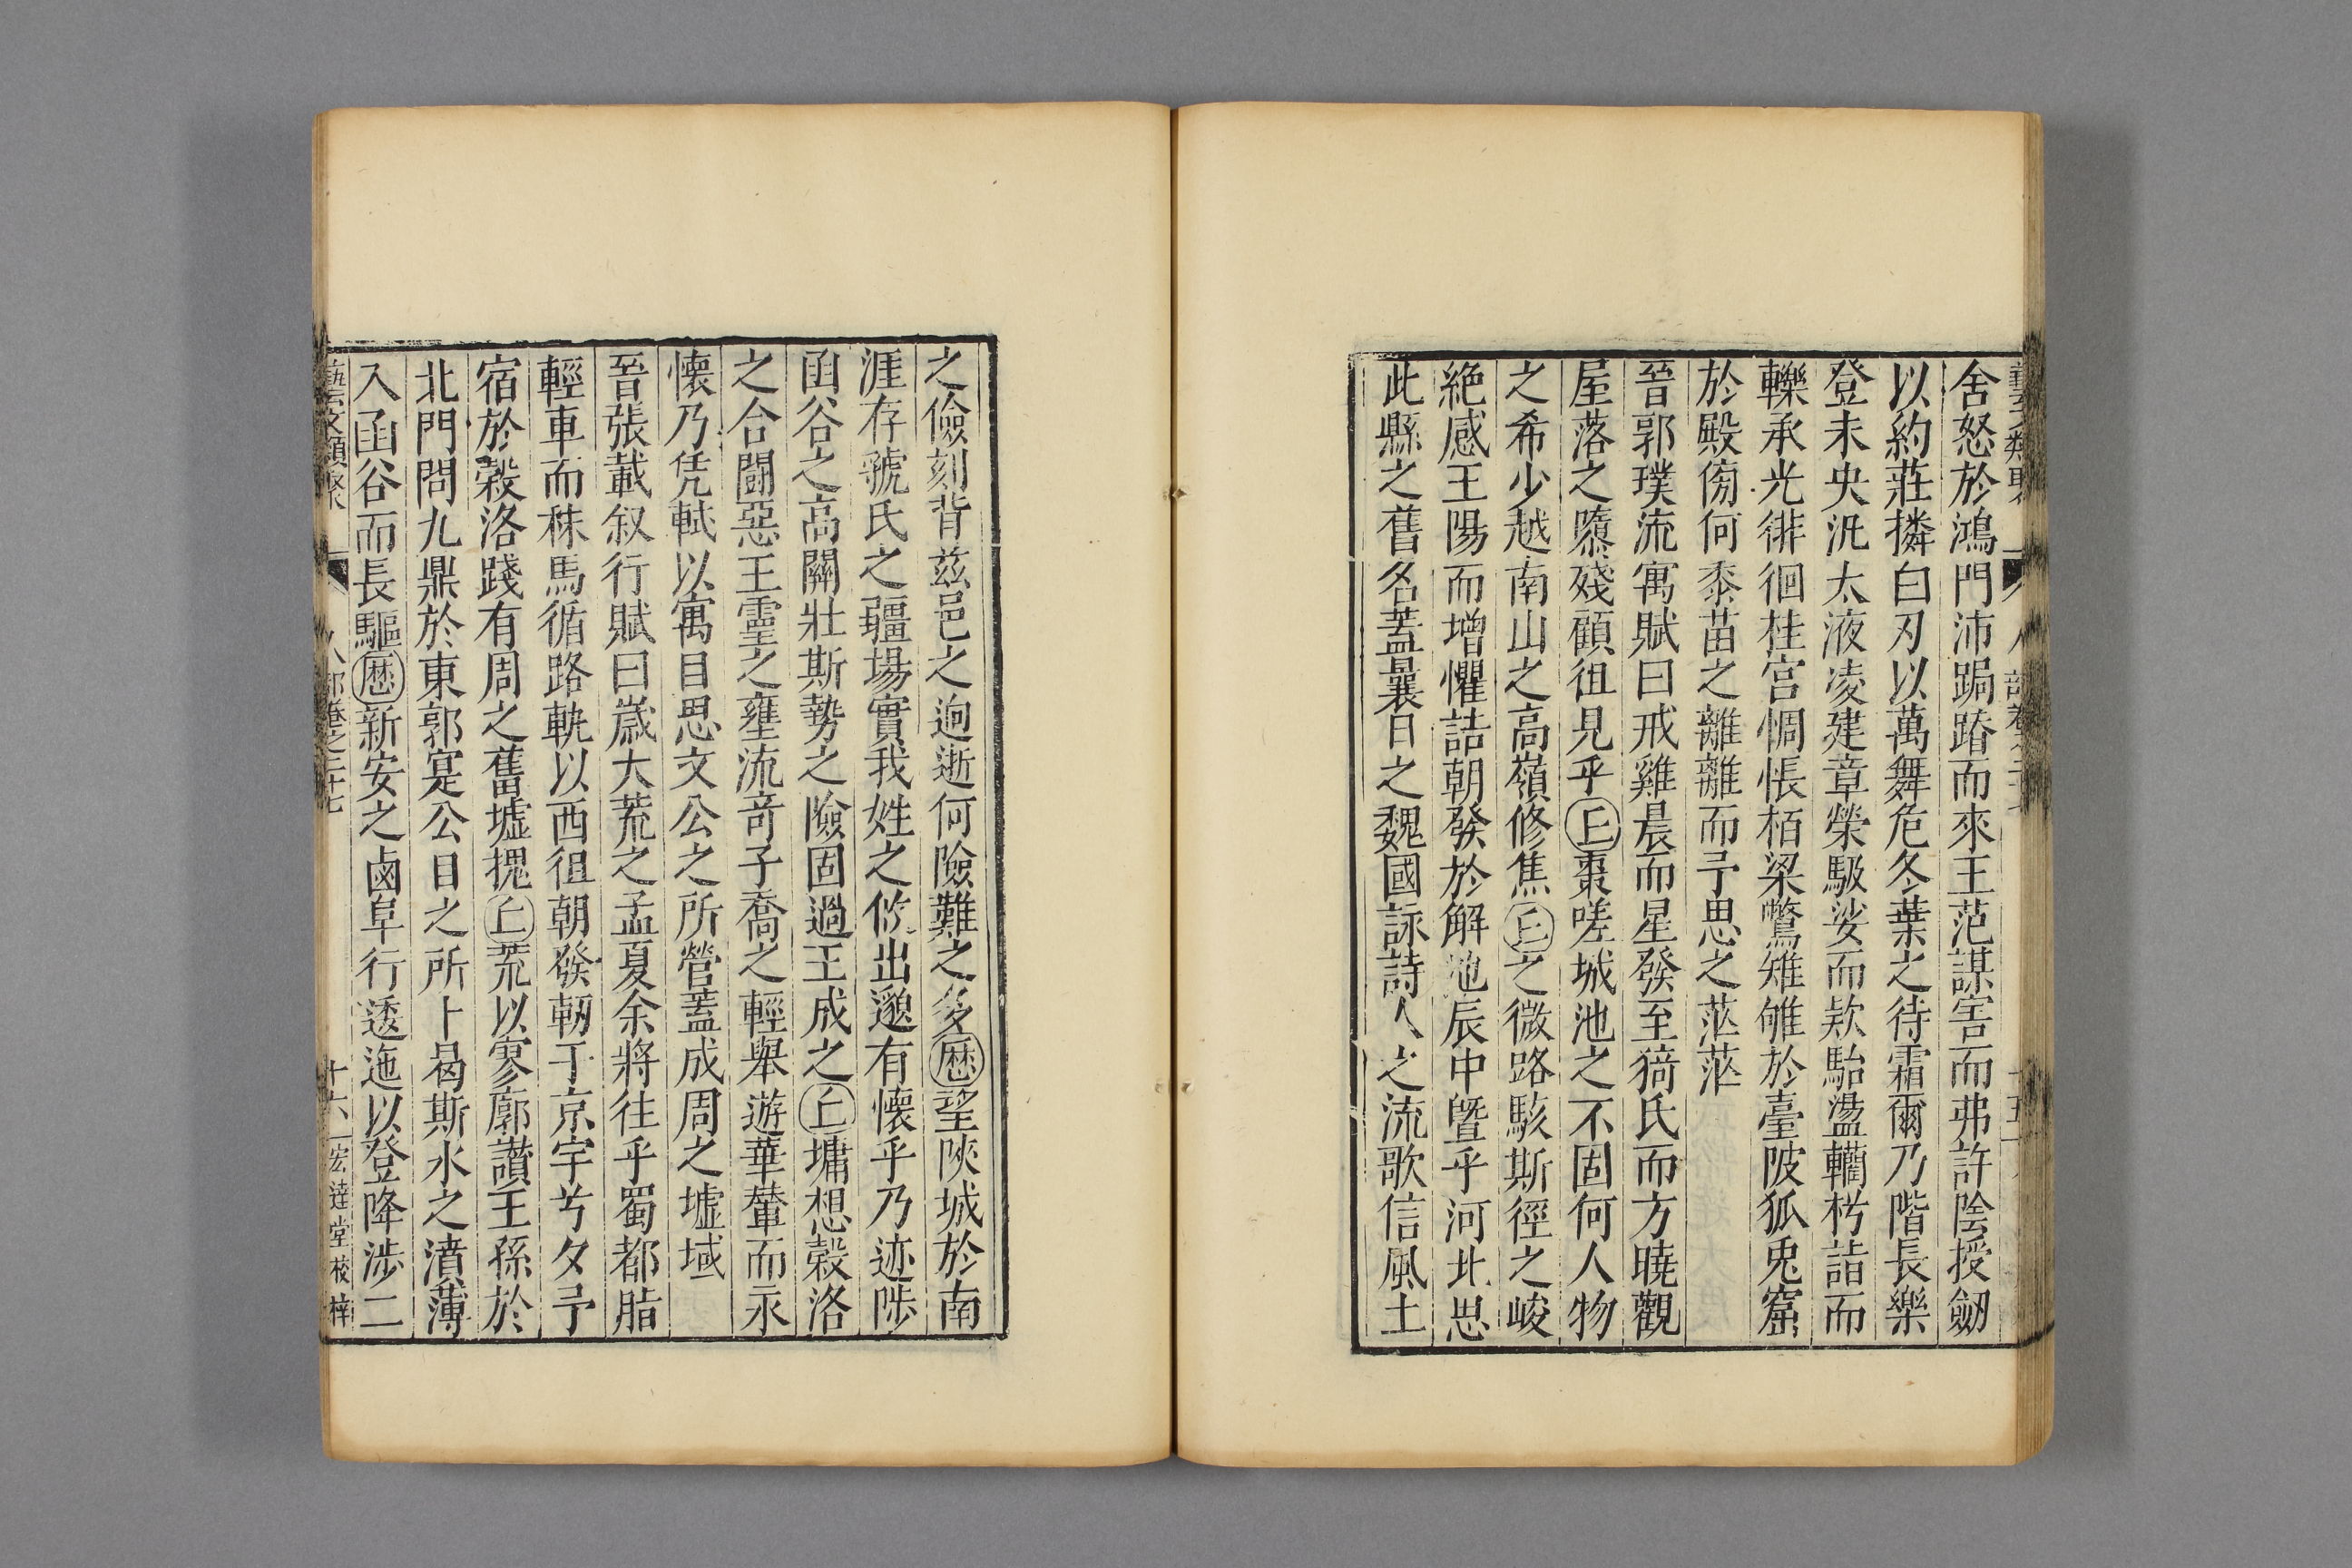 舍怒於鴻門沛跼蹐而來王范謀害而弗許陰授劒
以約莊撛白刃以萬舞危冬葉之待霜爾乃階長樂
登未央汎太液凌建章縈馺娑而欵駘盪轥枍詣而
轢承光徘徊桂宫惆悵栢梁驚雉雊於臺陂狐兎窟
於殿傍何黍苗之離離而予思之茫茫
晉郭璞流寓賦曰戒雞晨而星發至猗氏而方曉觀
屋落之隳殘顧徂見乎丘棗嗟城池之不固何人物
之希少越南山之高嶺修焦丘之微路駭斯徑之峻
絶感王陽而增懼詰朝發於解池辰中曁乎河北思
此縣之舊名蓋曩日之魏國詠詩人之流歌信風土
之儉刻背兹邑之逈逝何險難之多歷望陝城於南
涯存虢氏之疆場實我姓之攸出邈有懷乎乃迹陟
函谷之高關壯斯勢之險固過王成之丘墉想榖洛
之合鬬惡王靈之壅流竒子喬之輕舉遊華輦而永
懷乃凭軾以寓目思文公之所營蓋成周之墟域
晉張載叙行賦曰歲大荒之孟夏余將往乎蜀都脂
輕車而秣馬循路軌以西徂朝發軔于京宇兮夕予
宿於榖洛踐有周之舊墟愧丘荒以寥廓讃王孫於
北門問九鼎於東郭寔公目之所卜曷斯水之濆薄
入函谷而長驅歷新安之鹵阜行透迤以登降涉二
藝文類聚 人部卷之二十七 十六 宏達堂校梓